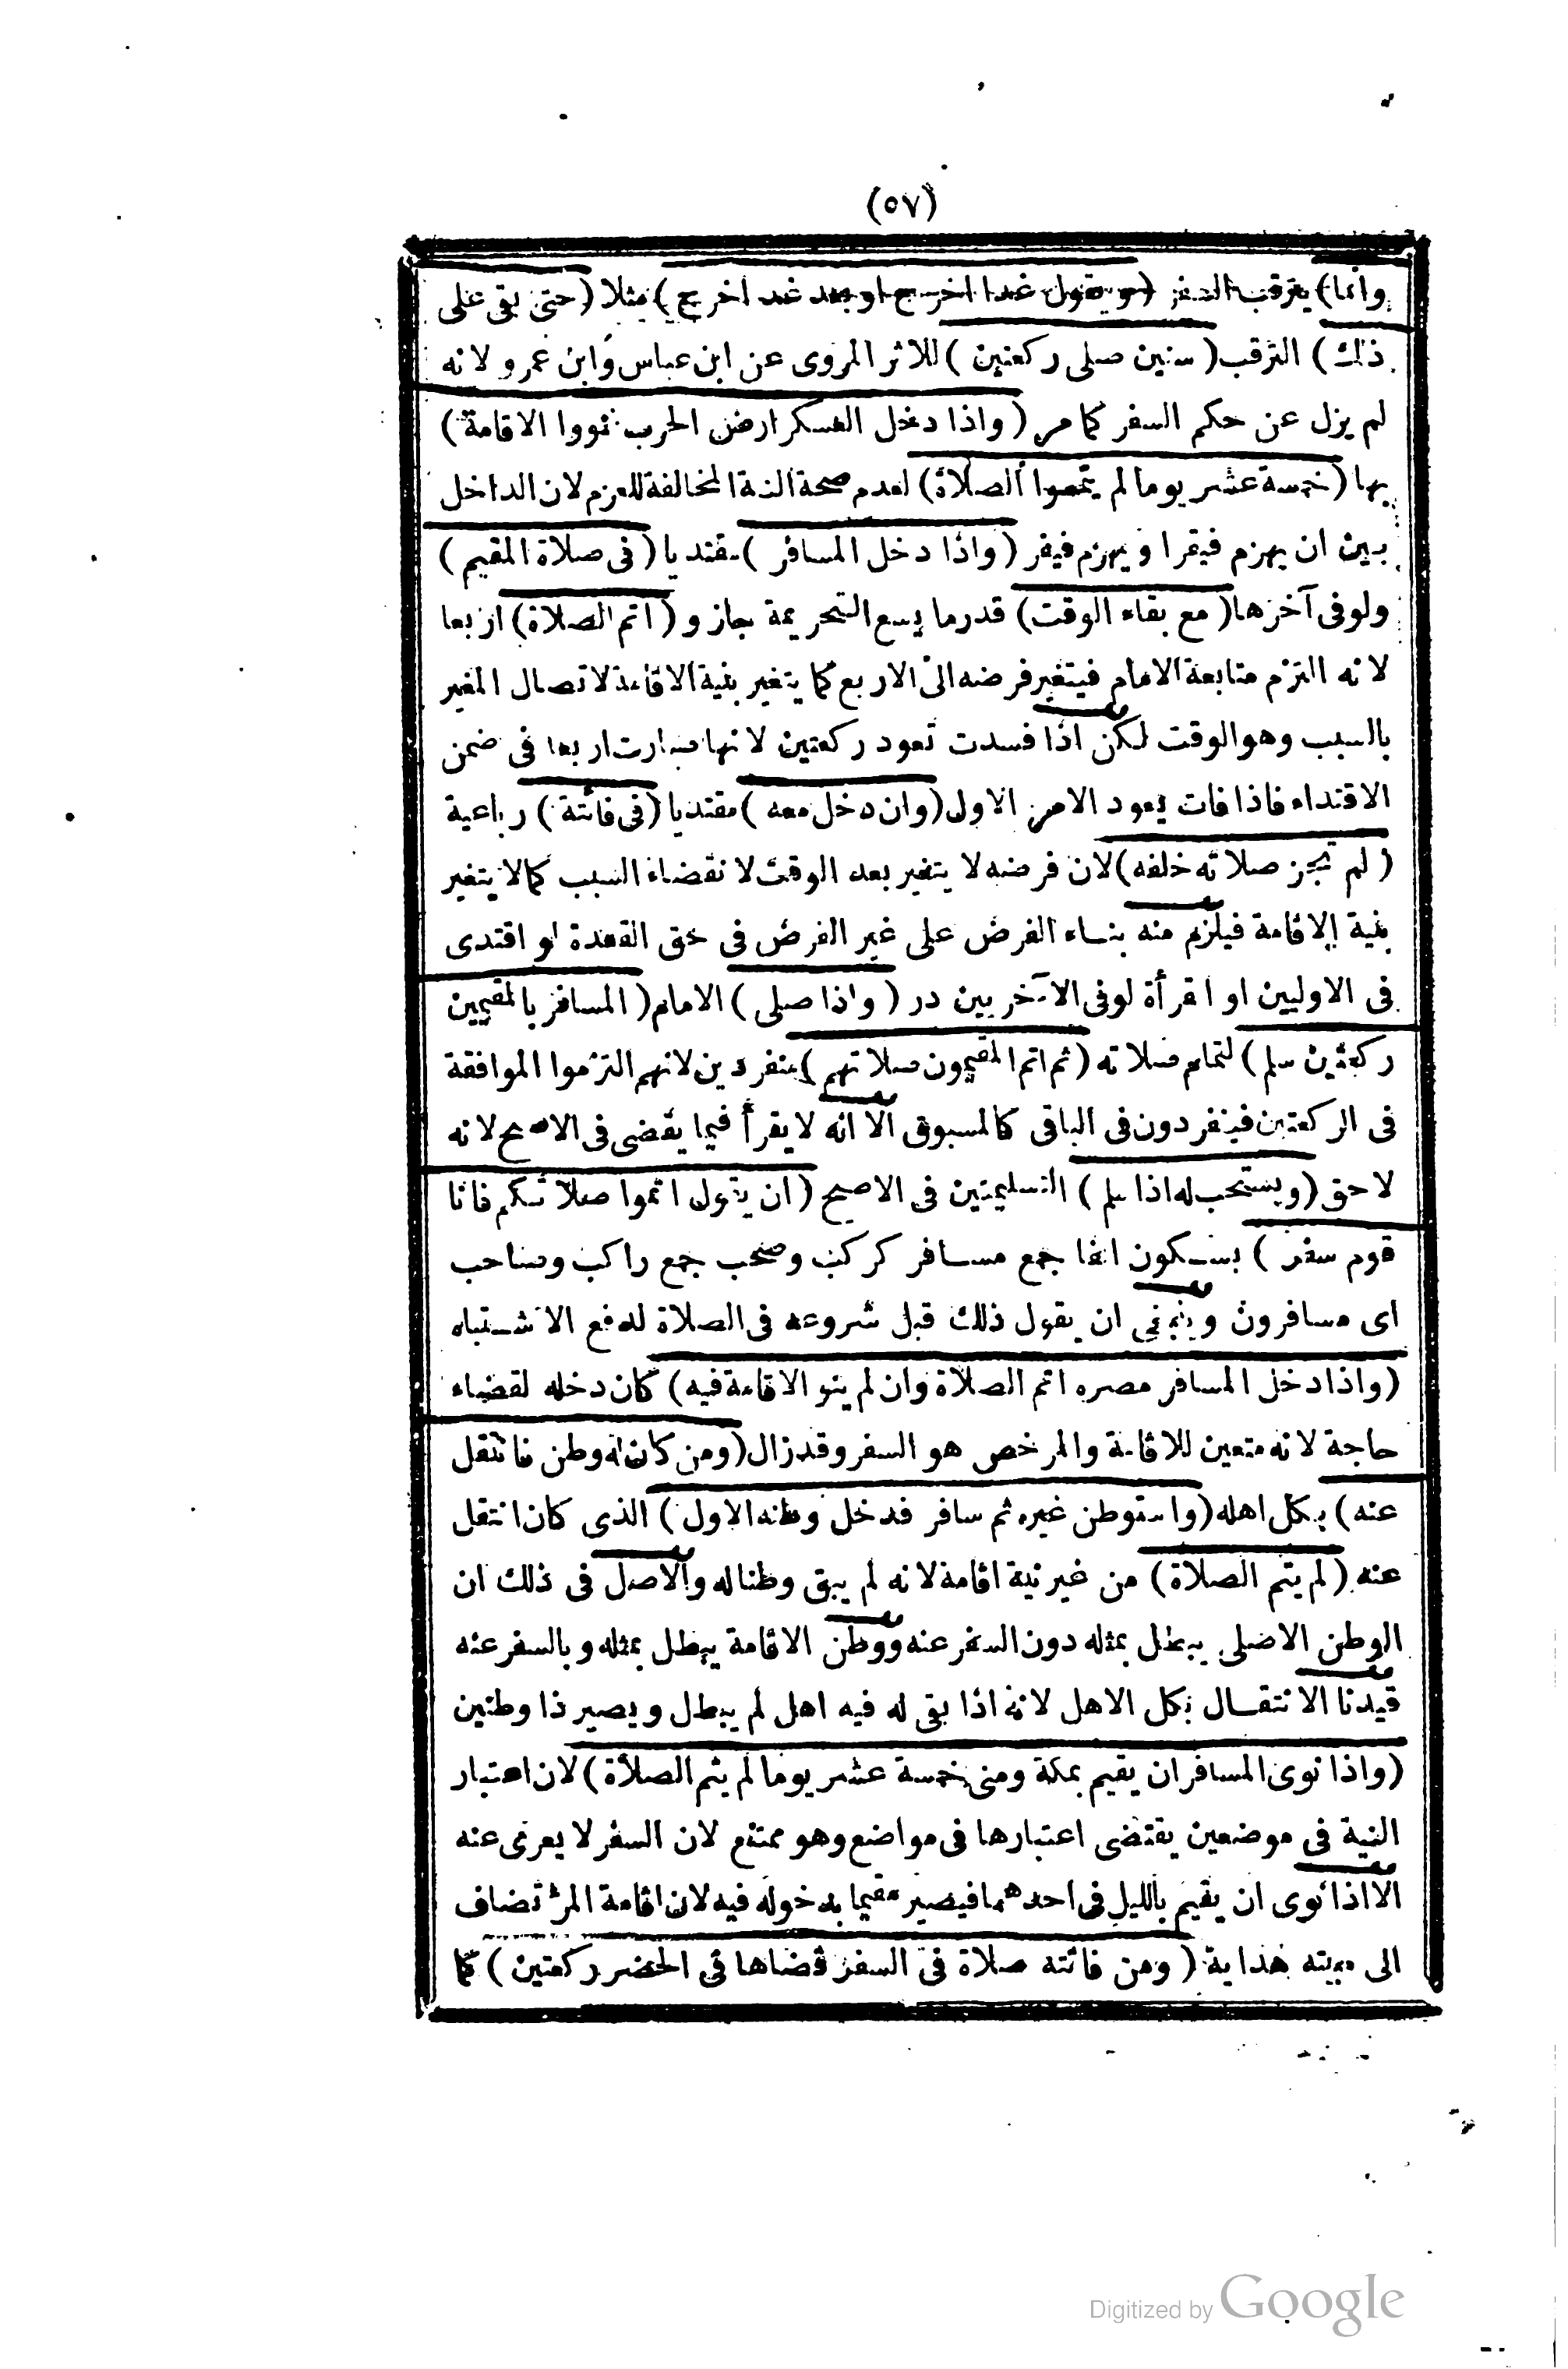 (٥٧)
وانما) يترقب السفر (ويقول غدا اخرج او بعد غد اخرج) مثلا (حتى بقى على
ذلك) الترقب (سنين صلى ركعتين) للاثر المروى عن ابن عباس وابن عمر ولانه
لم يزل عن حكم السفر كما مر (واذا دخل العسكر ارض الحرب فنووا الاقامة)
بها (خمسة عشر يوما لم يتموا الصلاة) لعدم صحة النية المخالفة للعزم لان الداخل
بين ان يهزم فيقرا ويهزم فيفر (واذا دخل المسافر) مقتديا (فى صلاة المقيم)
ولو فى آخرها (مع بقاء الوقت) قدر ما يسع التحريمة جاز و (اتم الصلاة) اربعا
لانه التزم متابعة الامام فيتغير فرضه الى الاربع كما يتغير بنية الاقامة لاتصال المغير
بالسبب وهو الوقت لكن اذا فسدت تعود ركعتين لانها صارت اربعا فى ضمن
الاقتداء فاذا فات يعود الامر الاول (وان دخل معه) مقتديا (فى فائتة) رباعية
(لم تجز صلاته خلفه) لان فرضه لا يتغير بعد الوقت لانقضاء السبب كما لا يتغير
بنية الاقامة فيلزم منه بناء الفرض على غير الفرض فى حق القعدة لو اقتدى
فى الاوليين او القرأة لو فى الآخريين در (واذا صلى) الامام (المسافر بالمقيمين
ركعتين سلم) لتمام صلاته (ثم اتم المقيمون صلاتهم) منفردين لانهم التزموا الموافقة
فى الركعتين فينفردون فى الباقى كالمسبوق الا انه لا يقرأ فيما يقضى فى الاصح لانه
لاحق (ويستحب له اذا سلم) التسليمتين فى الاصح (ان يقول اتموا صلاتكم فانا
قوم سفر) بسكون الفا جمع مسافر كركب وصحب جمع راكب وصاحب
اى مسافرون وينبغى ان يقول ذلك قبل شروعه فى الصلاة لدفع الاشتباه
(واذا دخل المسافر مصره اتم الصلاة وان لم ينو الاقامة فيه) كان دخله لقضاء
حاجة لانه متعين للاقامة والمرخص هو السفر وقد زال (ومن كان له وطن فانتقل
عنه) بكل اهله (واستوطن غيره ثم سافر فدخل وطنه الاول) الذى كان انتقل
عنه (لم يتم الصلاة) من غير نية اقامة لانه لم يبق وطنا له والاصل فى ذلك ان
الوطن الاصلى يبطل بمثله دون السفر عنه ووطن الاقامة يبطل بمثله وبالسفر عنه
قيدنا الانتقال بكل الاهل لانه اذا بقى له فيه اهل لم يبطل ويصير ذا وطنين
(واذا نوى المسافر ان يقيم بمكة ومنى خمسة عشر يوما لم يتم الصلاة) لان اعتبار
النية فى موضعين يقتضى اعتبارها فى مواضع وهو ممتنع لان السفر لا يعرى عنه
الا اذا نوى ان يقيم بالليل فى احدهما فيصير مقيما بدخوله فيه لان اقامة المرء تضاف
الى مبيته هداية (ومن فاتته صلاة فى السفر قضاها فى الحضر ركعتين) كما
Digitized by Google